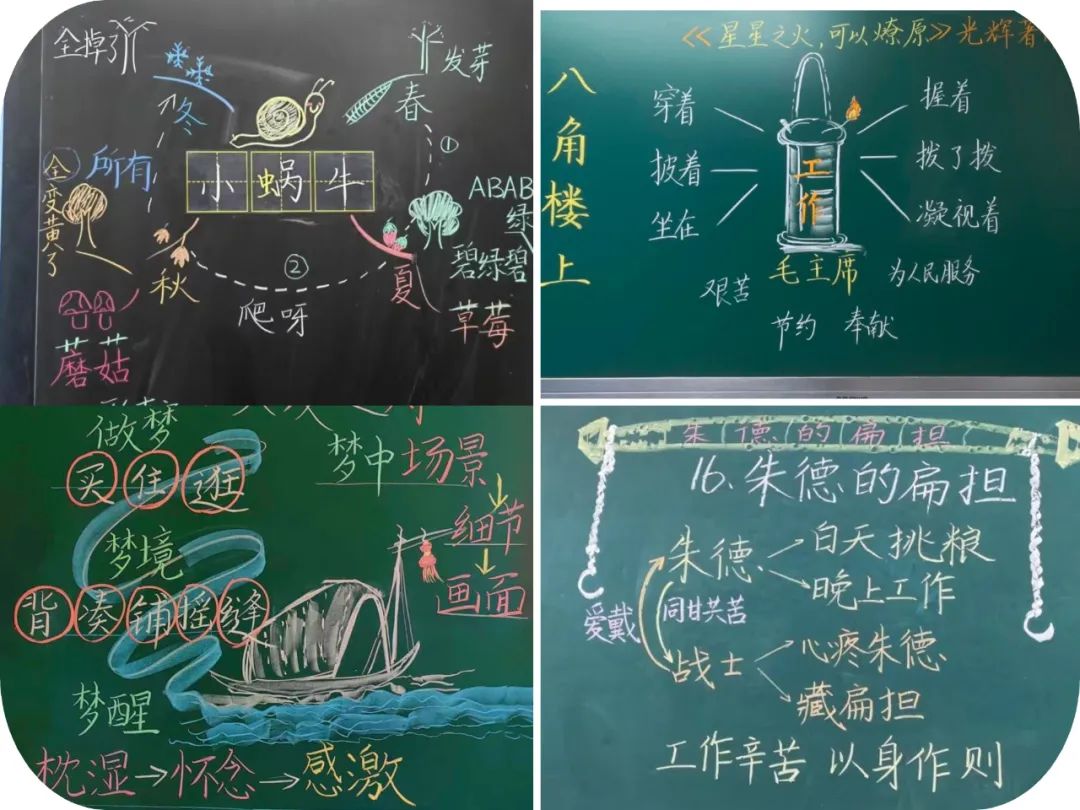 全掉了
冬
春
发芽
所有
全变黄了
小蜗牛
①
ABAB
绿
碧绿碧
秋
②
夏
爬呀
草莓
蘑菇
《星星之火,可以燎原》光辉著
八角楼上
穿着
披着
坐在
工作
握着
拨了拨
凝视着
毛主席
艰苦
为人民服务
节约 奉献
做梦
买住逛
梦境
背凑铺摇缝
梦醒
枕湿→怀念→感激
梦中场景
细节
画面
朱德的扁担
16.朱德的扁担
朱德
白天挑粮
晚上工作
爱戴
同甘共苦
战士
心疼朱德
藏扁担
工作辛苦 以身作则